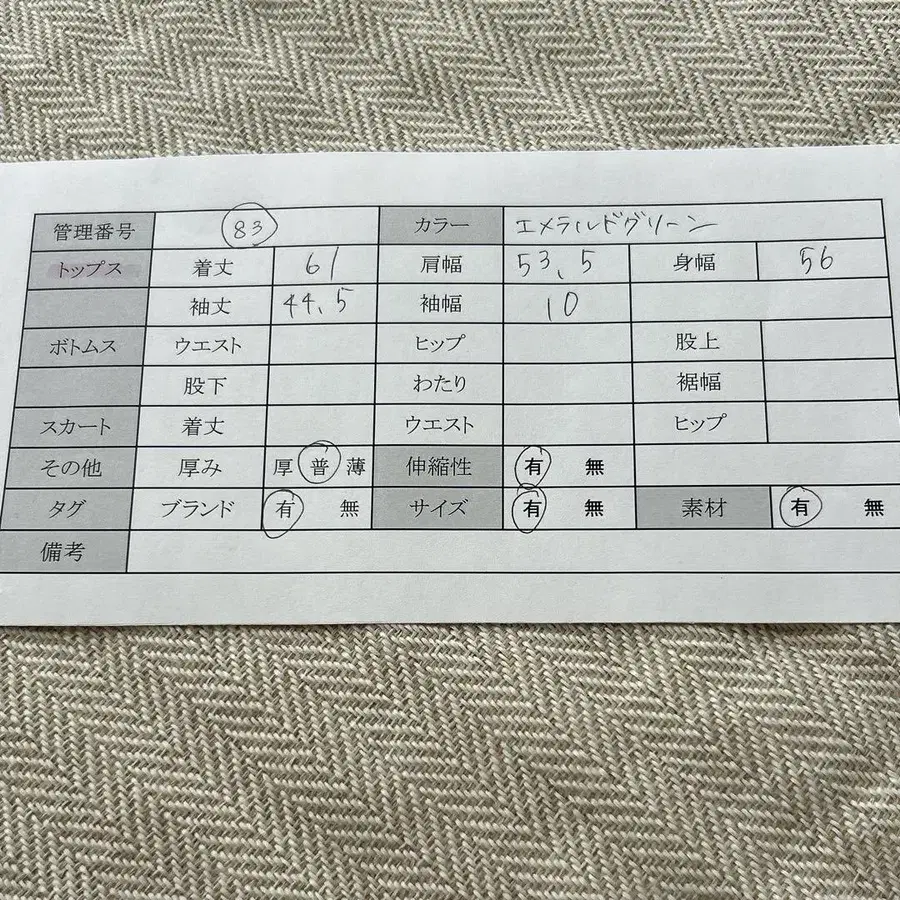 管理番号 83 カラー エメラルドグリーン
トップス 着丈 61 肩幅 53.5 身幅 56
袖丈 44.5 袖幅 10
ボトムス ウエスト ヒップ 股上
股下 わたり 裾幅
スカート 着丈 ウエスト ヒップ
その他 厚み 厚 普 薄 伸縮性 有 無
タグ ブランド 有 無 サイズ 有 無 素材 有 無
備考